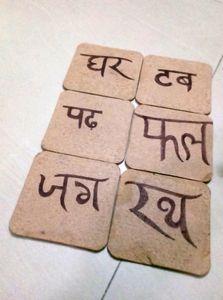 घर टब
पढ फल
जग रथ